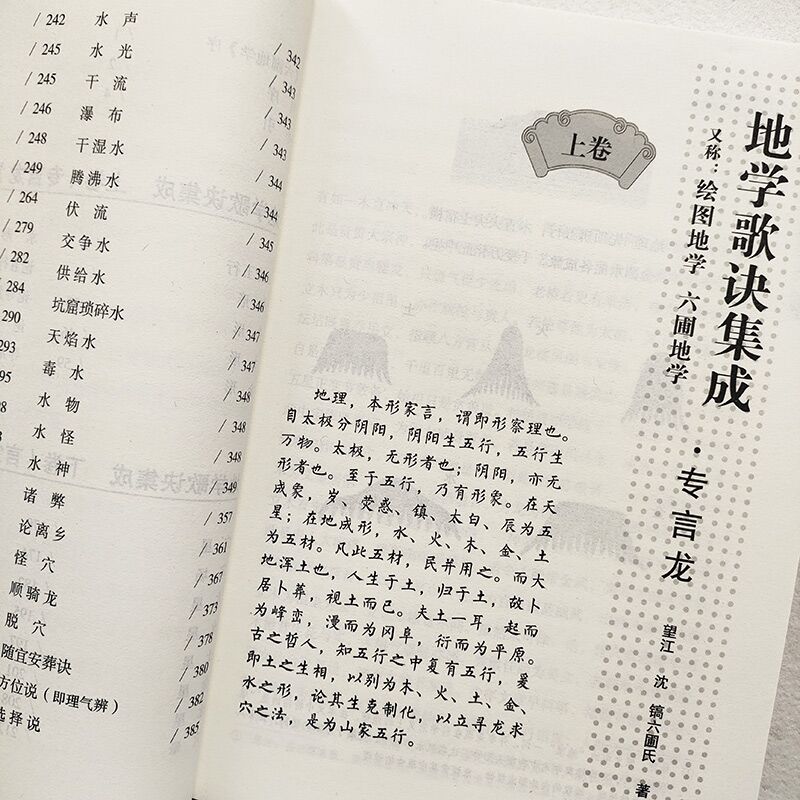 / 242 水声 / 342
/ 245 水光 / 343
/ 245 干流 / 343
/ 246 瀑布 / 343
/ 248 干湿水 / 344
/ 249 腾沸水 / 344
/ 264 伏流 / 345
/ 279 交争水 / 346
/ 282 供给水 / 346
284 坑窟琐碎水 / 347
290 天焰水 / 347
293 毒水 / 348
95 水物 / 348
98 水怪 / 348
水神 / 349
诸弊 / 357
论离乡 / 361
怪穴 / 367
顺骑龙 / 373
脱穴 / 378
随宜安葬诀 / 380
方位说（即理气辨） / 382
选择说 / 385
地学歌诀集成·专言龙
又称：绘图地学 六圃地学
望江 沈镐六圃氏 著
上卷
地理，本形家言，谓即形察理也。
自太极分阴阳，阴阳生五行，五行生
万物。太极，无形者也；阴阳，亦无
形者也。至于五行，乃有形象。在天
成象，岁、荧惑、镇、太白、辰为五
星；在地成形，水、火、木、金、土
为五材。凡此五材，民并用之。而大
地浑土也，人生于土，归于土，故卜
居卜葬，视土而已。夫土一耳，起而
为峰峦，漫而为冈阜，衍而为平原。
古之哲人，知五行之中复有五行，爰
即土之生相，以别为木、火、土、金、
水之形，论其生克制化，以立寻龙求
穴之法，是为山家五行。